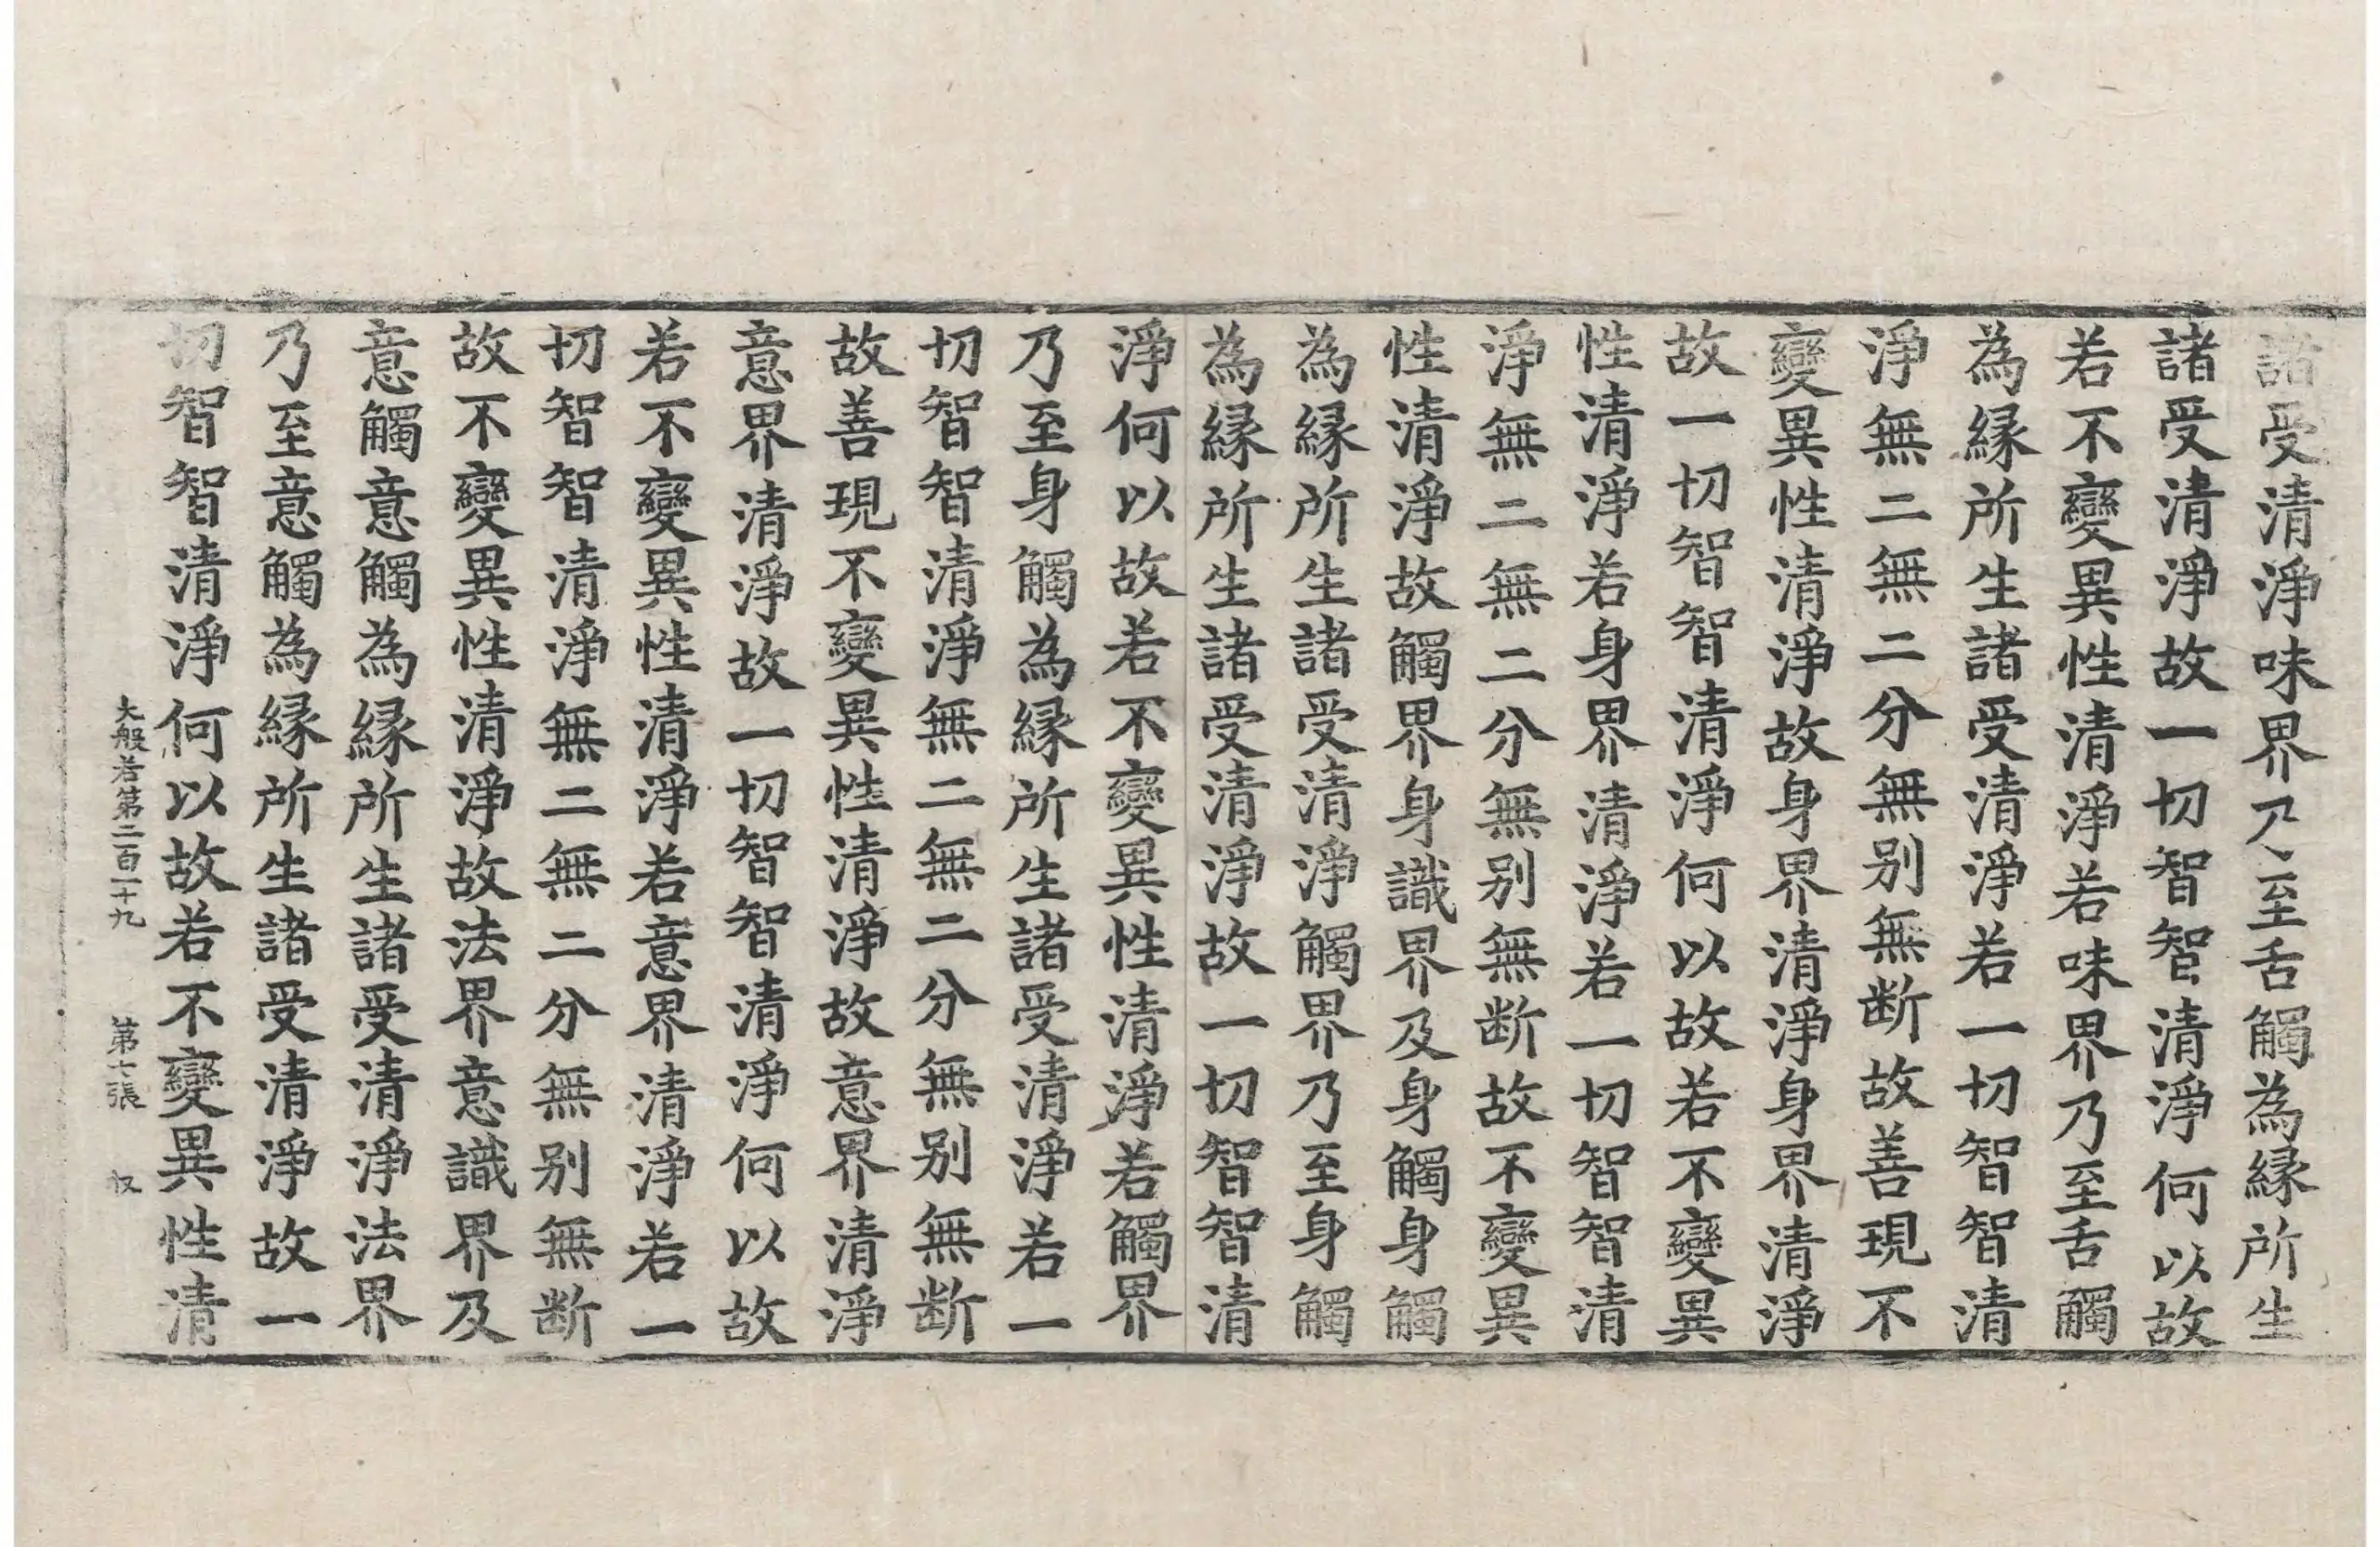 諸受清淨味界乃至舌觸為緣所生
諸受清淨故一切智智清淨何以故
若不變異性清淨若味界乃至舌觸
為緣所生諸受清淨若一切智智清
淨無二無二分無別無断故善現不
變異性清淨故身界清淨身界清淨
故一切智智清淨何以故若不變異
性清淨若身界清淨若一切智智清
淨無二無二分無別無断故不變異
性清淨故觸界身識界及身觸身觸
為緣所生諸受清淨觸界乃至身觸
為緣所生諸受清淨故一切智智清
淨何以故若不變異性清淨若觸界
乃至身觸為緣所生諸受清淨若一
切智智清淨無二無二分無別無断
故善現不變異性清淨故意界清淨
意界清淨故一切智智清淨何以故
若不變異性清淨若意界清淨若一
切智智清淨無二無二分無別無断
故不變異性清淨故法界意識界及
意觸意觸為緣所生諸受清淨法界
乃至意觸為緣所生諸受清淨故一
切智智清淨何以故若不變異性清
大般若第二百一十九 第七張